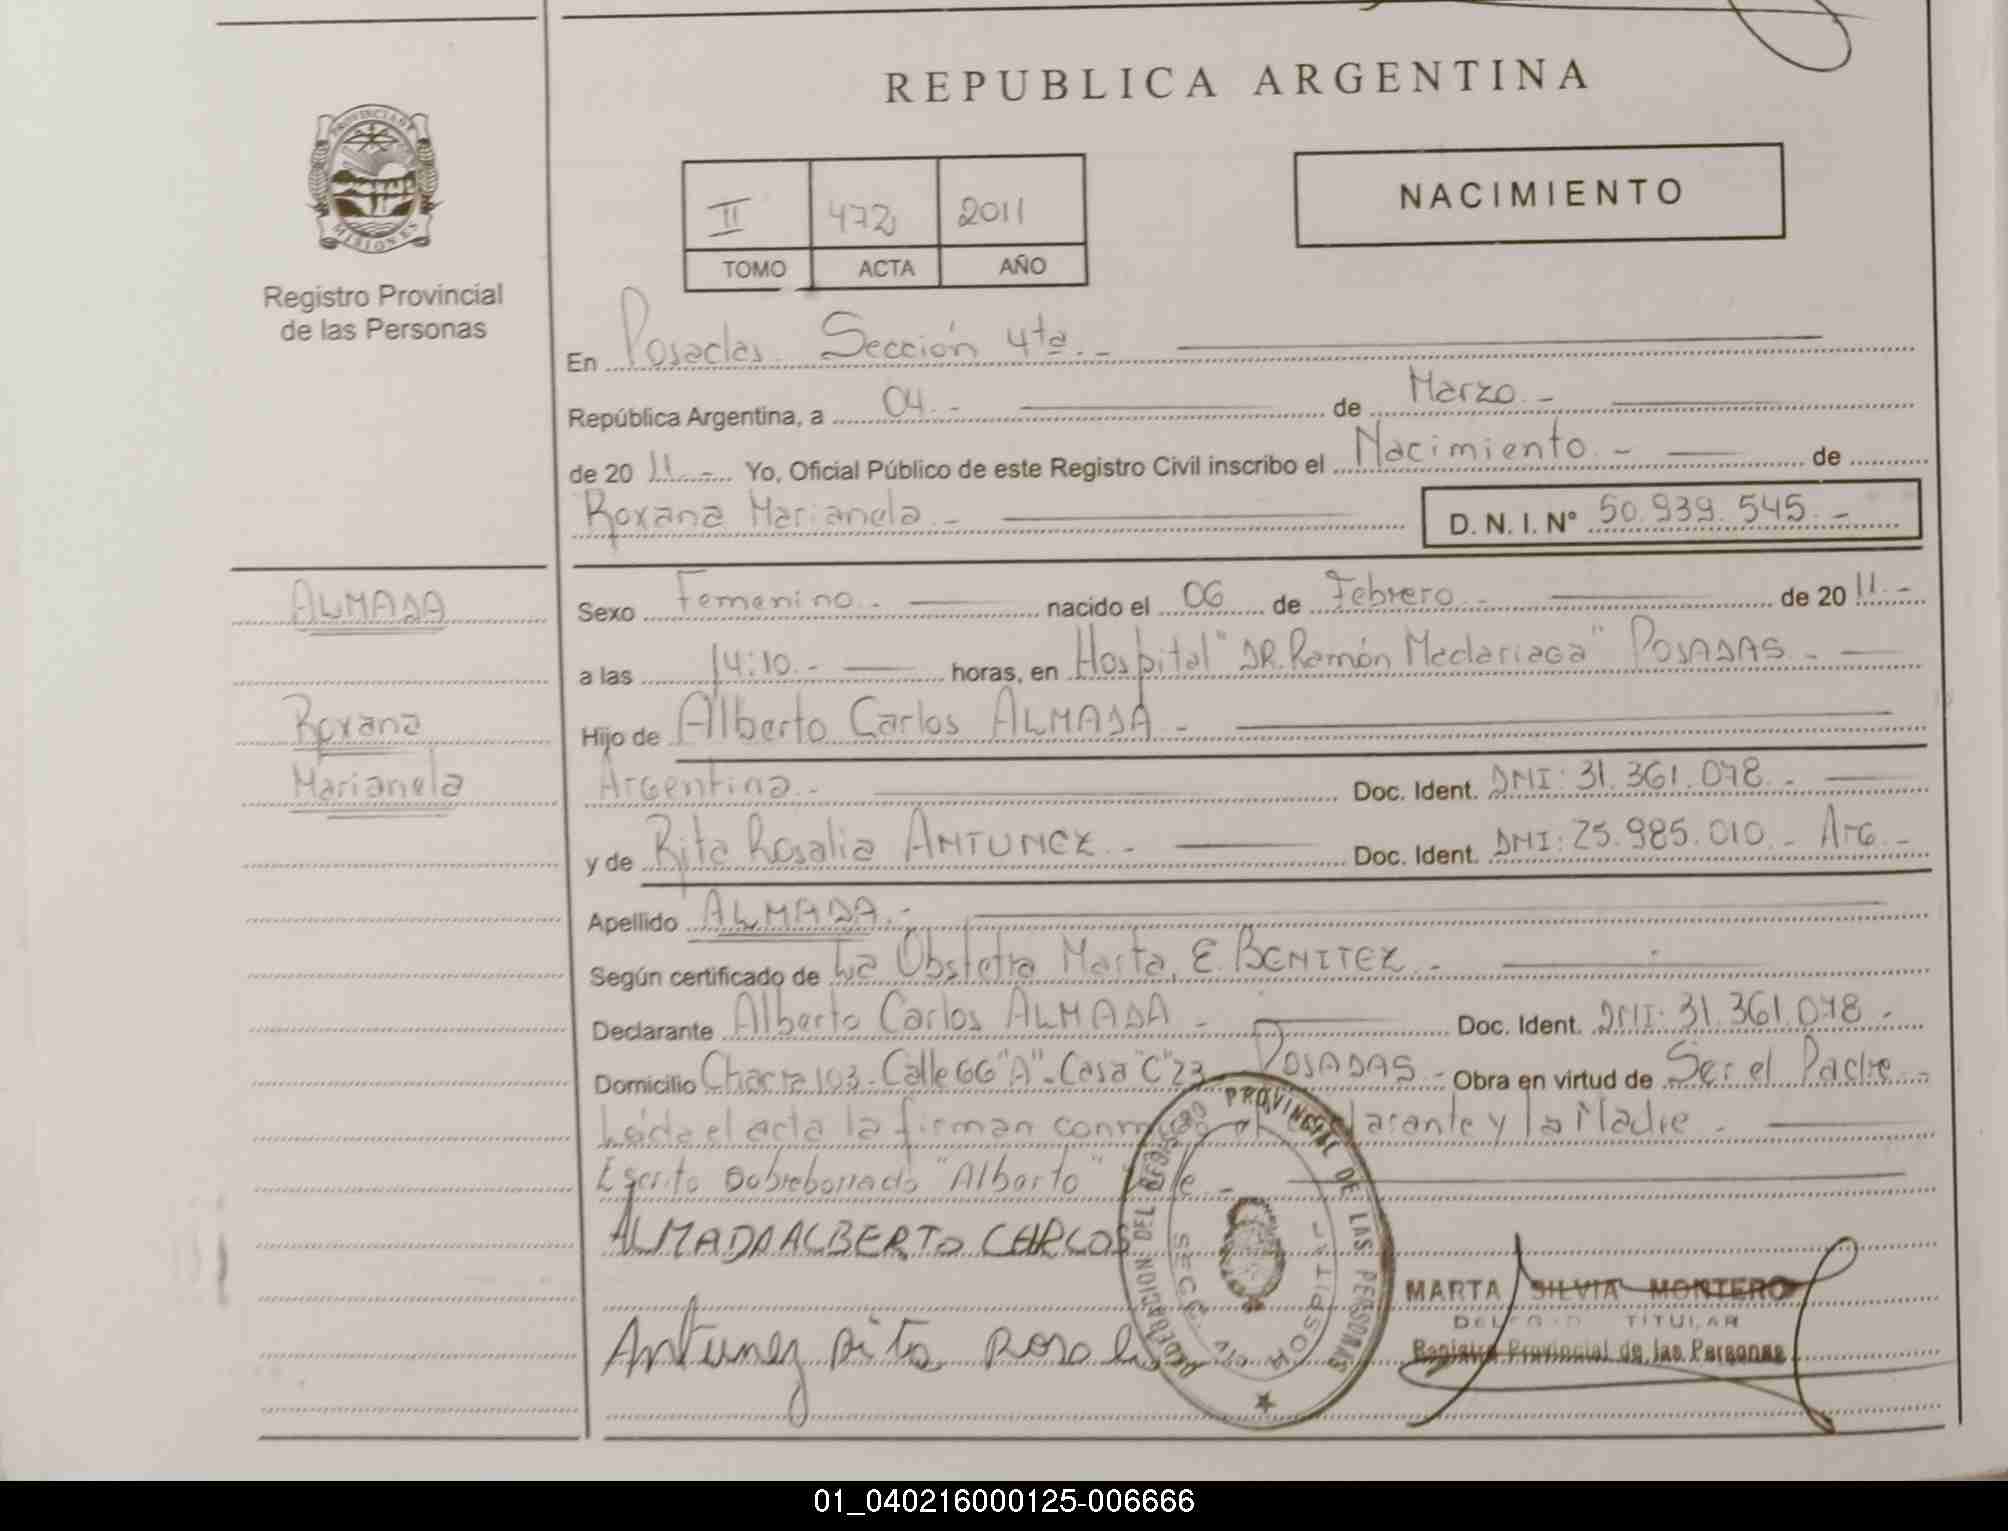 REPUBLICA ARGENTINA
PROVINCIA DE
MISIONES
Registro Provincial
de las Personas
II 472 2011
TOMO ACTA AÑO
NACIMIENTO
En Posadas Sección 4ta.-
República Argentina, a 04.- de Marzo.-
de 20 11.- Yo, Oficial Público de este Registro Civil inscribo el Nacimiento.- de
Roxana Marianela.- D. N. I. Nº 50.939.545.-
ALMADA
Roxana
Marianela
Sexo Femenino.- nacido el 06 de Febrero.- de 20 11.-
a las 14:10.- horas, en Hospital "DR. Ramón Madariaga" POSADAS.-
Hijo de Alberto Carlos ALMADA.-
Argentina.- Doc. Ident. DNI: 31.361.078.-
y de Rita Rosalia ANTUNEZ.- Doc. Ident. DNI: 25.985.010.- Arg.-
Apellido ALMADA.-
Según certificado de La Obstetra Marta, E. BENITEZ.-
Declarante Alberto Carlos ALMADA.- Doc. Ident. DNI: 31.361.078.-
Domicilio Chacra 103.- Calle 66 "A".- Casa "C" 23 POSADAS.- Obra en virtud de Ser el Padre.-
Leída el acta la firman conmigo el declarante y la Madre.-
Escrito Sobreborrado "Alberto" Vale.-
ALMADA ALBERTO CARLOS
Antunez Rita Rosalia
DELEGACION DEL REGISTRO PROVINCIAL DE LAS PERSONAS
MARTA SILVIA MONTERO
DELEGADA TITULAR
Registro Provincial de las Personas
01_040216000125-006666